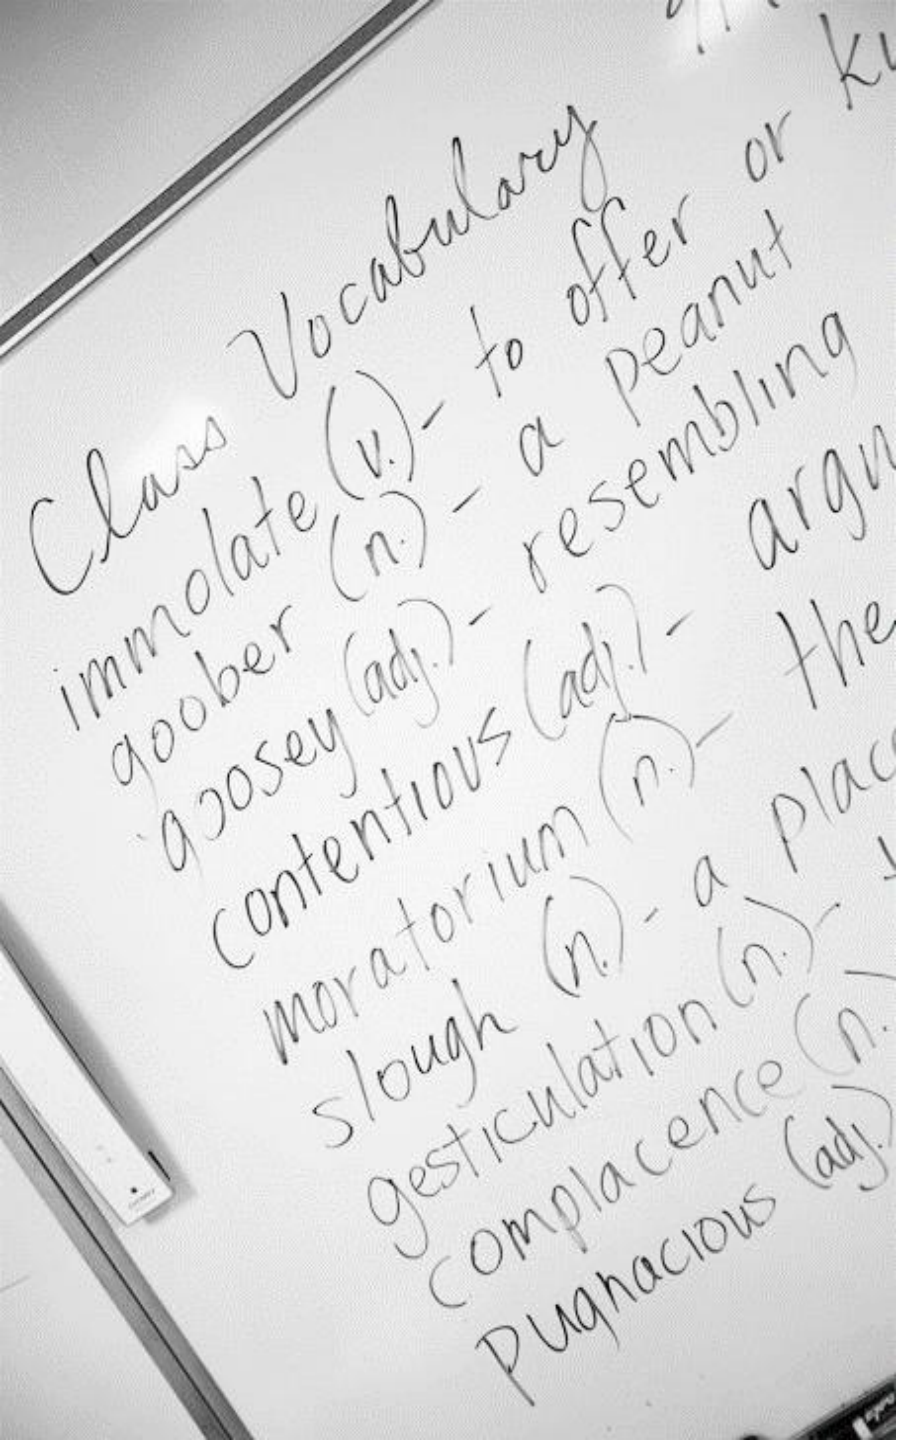 Class Vocabulary
immolate (v.) - to offer or
goober (n.) - a peanut
goosey (adj.) - resembling
contentious (adj.) - argu
moratorium (n.) - the
slough (n.) - a plac
gesticulation (n.) -
complacence (n.
pugnacious (adj.)